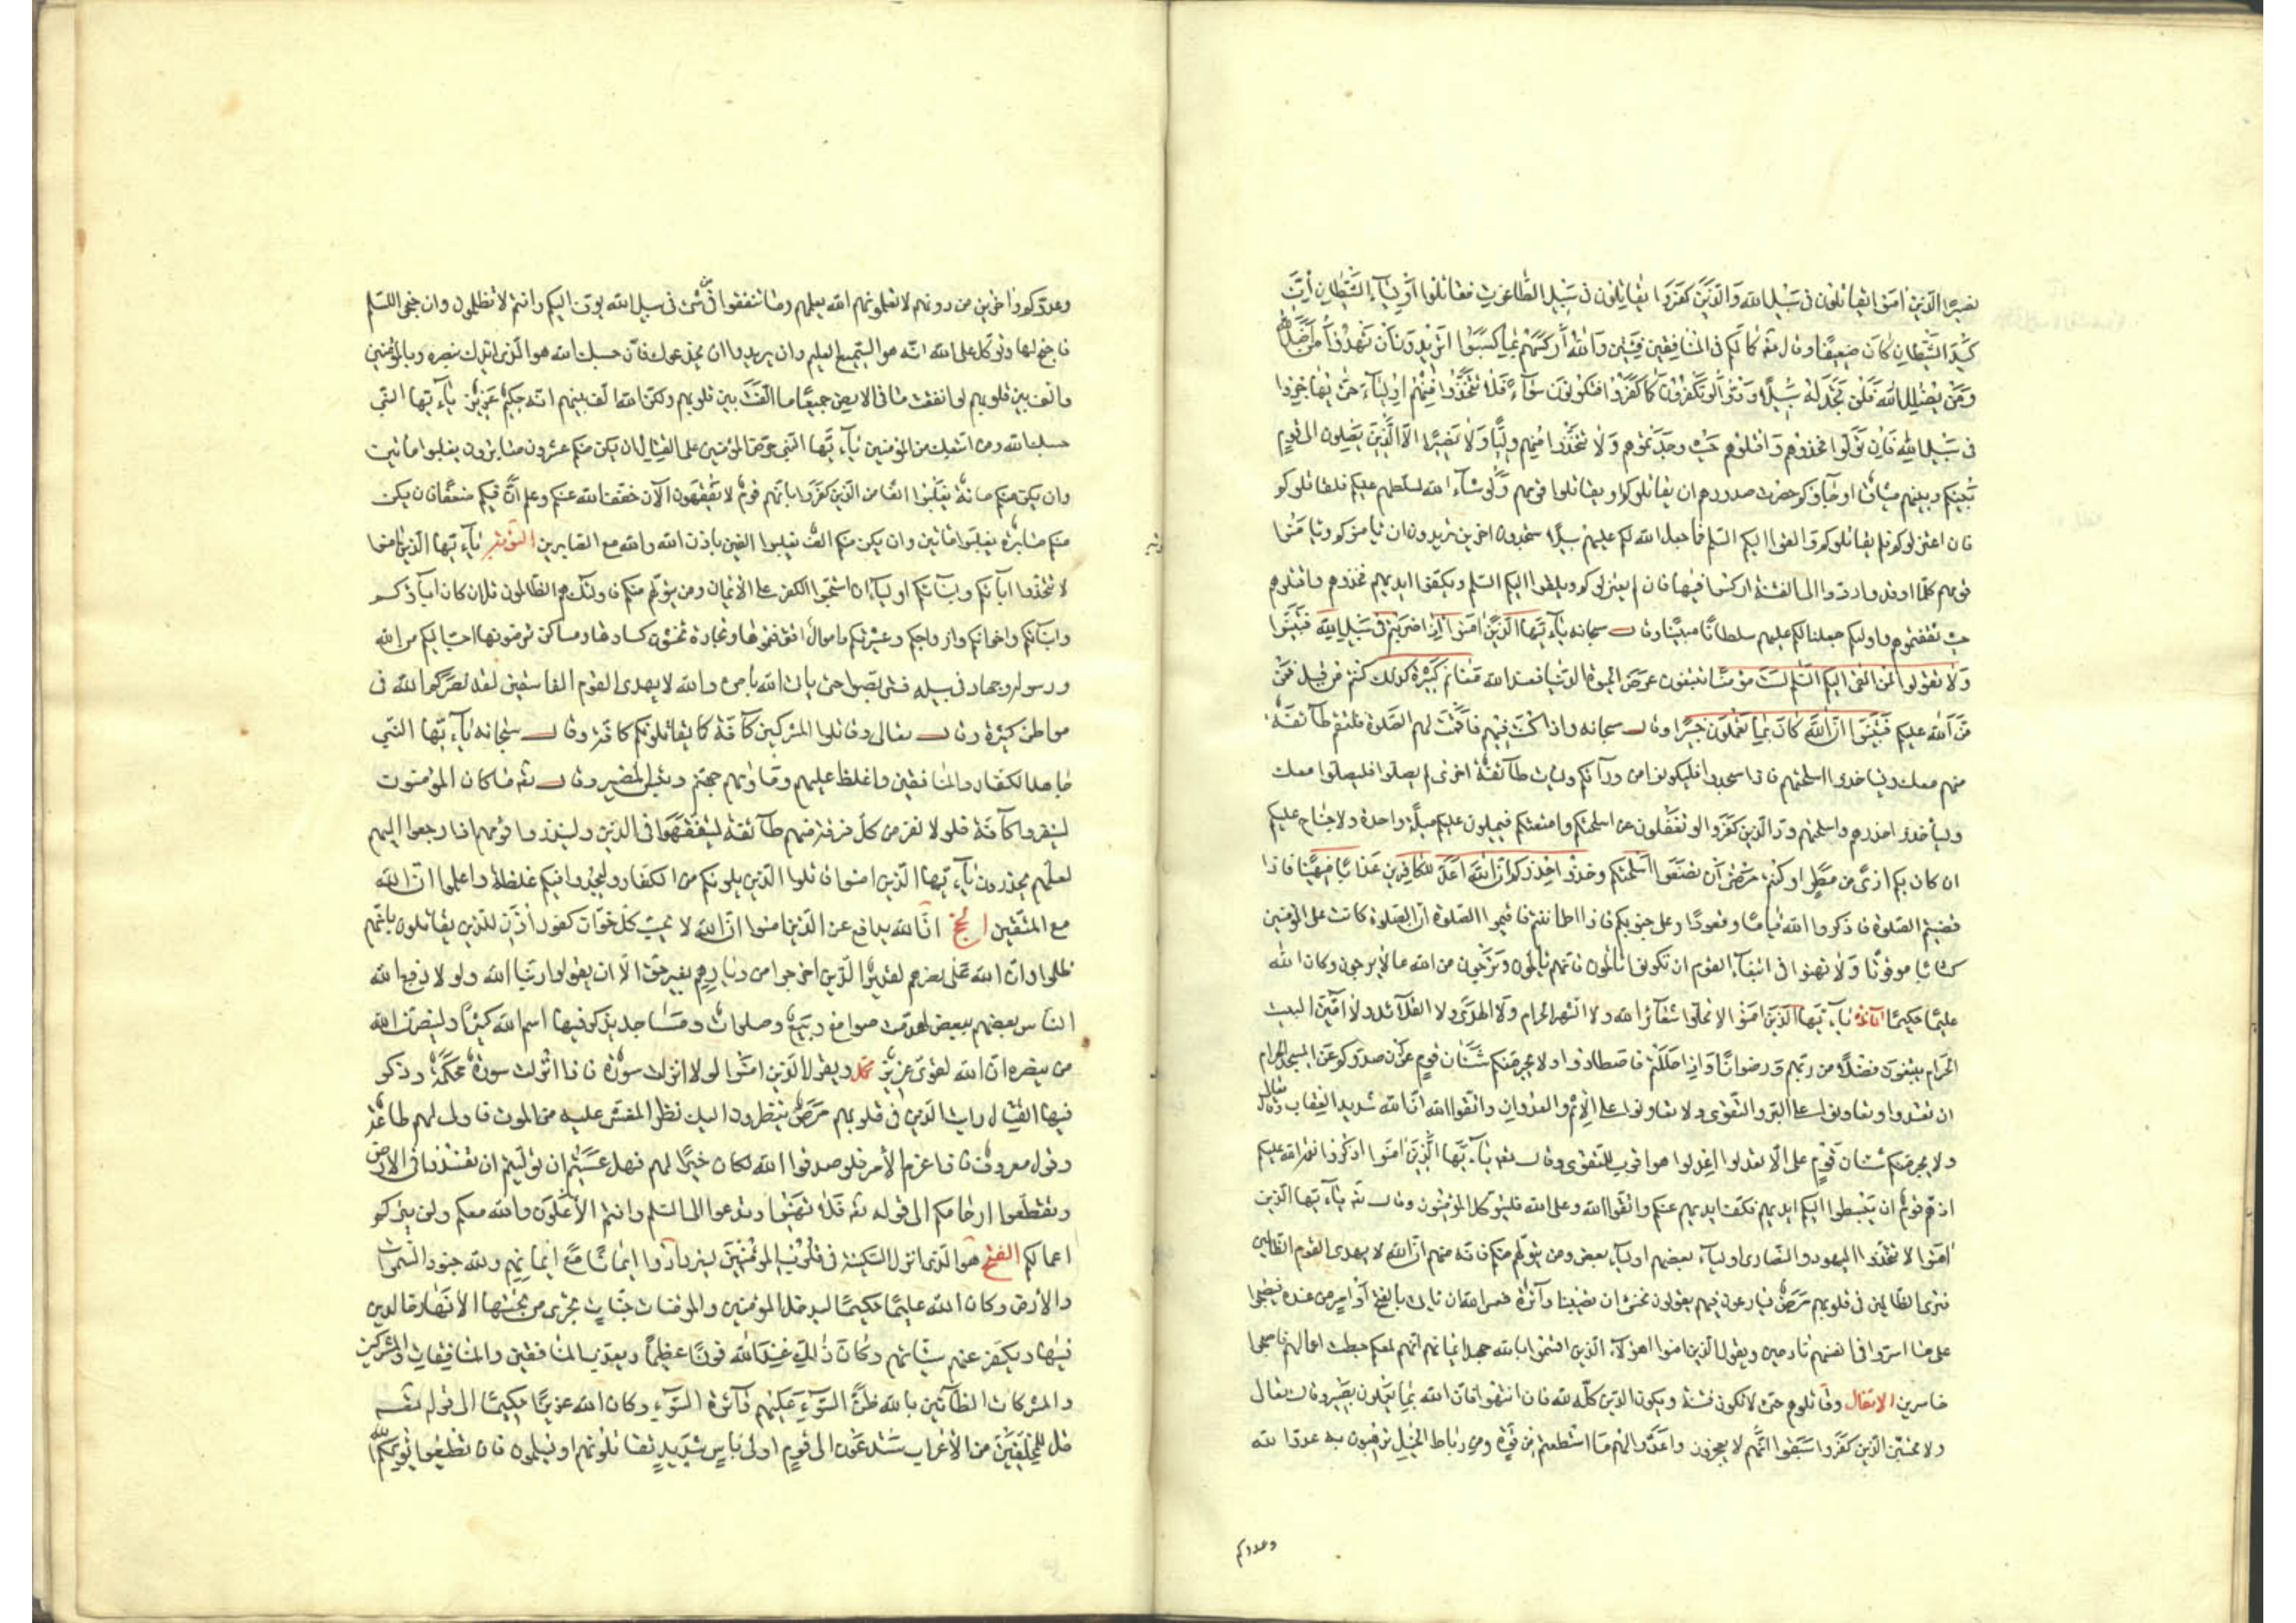 نصيرا الّذين امنوا يقاتلون فى سبيل الله والّذين كفروا يقاتلون فى سبيل الطّاغوت فقاتلوا اوليآء الشّيطان انّ
كيد الشّيطان كان ضعيفا وقال تعه فما لكم فى المنافقين فئتين والله اركسهم بما كسبوا اتريدون ان تهدوا من اضلّ الله
ومن يضلل الله فلن تجد له سبيلا ودّوا لو تكفرون كما كفروا فتكونون سوآء فلا تتّخذوا منهم اوليآء حتّى يهاجروا
فى سبيل الله فان تولّوا فخذوهم واقتلوهم حيث وجدتموهم ولا تتّخذوا منهم وليّا ولا نصيرا الّا الّذين يصلون الى قوم
بينكم وبينهم ميثاق او جآؤكم حصرت صدورهم ان يقاتلوكم او يقاتلوا قومهم ولو شآء الله لسلّطهم عليكم فلقاتلوكم
فان اعتزلوكم فلم يقاتلوكم والقوا اليكم السّلم فما جعل الله لكم عليهم سبيلا ستجدون اخرين يريدون ان يأمنوكم ويأمنوا
قومهم كلّما ردّوا الى الفتنة اركسوا فيها فان لم يعتزلوكم ويلقوا اليكم السّلم ويكفّوا ايديهم فخذوهم واقتلوهم
حيث ثقفتموهم واولئكم جعلنا لكم عليهم سلطانا مبينا وقال سبحانه يآ ايّها الّذين امنوا اذا ضربتم فى سبيل الله فتبيّنوا
ولا تقولوا لمن القى اليكم السّلم لست مؤمنا تبتغون عرض الحيوة الدّنيا فعند الله مغانم كثيرة كذلك كنتم من قبل فمنّ
منّ الله عليكم فتبيّنوا انّ الله كان بما تعملون خبيرا وقال سبحانه واذا كنت فيهم فاقمت لهم الصّلوة فلتقم طآئفة
منهم معك وليأخذوا اسلحتهم فاذا سجدوا فليكونوا من ورآئكم ولتأت طآئفة اخرى لم يصلّوا فليصلّوا معك
وليأخذوا حذرهم واسلحتهم ودّ الّذين كفروا لو تغفلون عن اسلحتكم وامتعتكم فيميلون عليكم ميلة واحدة ولا جناح عليكم
ان كان بكم اذى من مطر او كنتم مرضى ان تضعوا اسلحتكم وخذوا حذركم انّ الله اعدّ للكافرين عذابا مهينا فاذا
قضيتم الصّلوة فاذكروا الله قياما وقعودا وعلى جنوبكم فاذا اطمأننتم فاقيموا الصّلوة انّ الصّلوة كانت على المؤمنين
كتابا موقوتا ولا تهنوا فى ابتغآء القوم ان تكونوا تألمون فانّهم يألمون وترجون من الله ما لا يرجون وكان الله
عليما حكيما المآئدة يآ ايّها الّذين امنوا لا تحلّوا شعآئر الله ولا الشّهر الحرام ولا الهدى ولا القلآئد ولا امّين البيت
الحرام يبتغون فضلا من ربّهم ورضوانا واذا حللتم فاصطادوا ولا يجرمنّكم شنئان قوم ان صدّوكم عن المسجد الحرام
ان تعتدوا وتعاونوا على البرّ والتّقوى ولا تعاونوا على الاثم والعدوان واتّقوا الله انّ الله شديد العقاب وقال تعالى
ولا يجرمنّكم شنئان قوم على الّا تعدلوا اعدلوا هو اقرب للتّقوى وقال تعه يآ ايّها الّذين امنوا اذكروا نعمة الله عليكم
اذ همّ قوم ان يبسطوا اليكم ايديهم فكفّ ايديهم عنكم واتّقوا الله وعلى الله فليتوكّل المؤمنون وقال تعه يآ ايّها الّذين
امنوا لا تتّخذوا اليهود والنّصارى اوليآء بعضهم اوليآء بعض ومن يتولّهم منكم فانّه منهم انّ الله لا يهدى القوم الظّالمين
فترى الّذين فى قلوبهم مرض يسارعون فيهم يقولون نخشى ان تصيبنا دآئرة فعسى الله ان يأتى بالفتح او امر من عنده فيصبحوا
على ما اسرّوا فى انفسهم نادمين ويقول الّذين امنوا اهؤلآء الّذين اقسموا بالله جهد ايمانهم انّهم لمعكم حبطت اعمالهم فاصبحوا
خاسرين الانفال وقاتلوهم حتّى لا تكون فتنة ويكون الدّين كلّه لله فان انتهوا فانّ الله بما يعملون بصير وقال تعالى
ولا تحسبنّ الّذين كفروا سبقوا انّهم لا يعجزون واعدّوا لهم ما استطعتم من قوّة ومن رباط الخيل ترهبون به عدوّ الله
وعدوكم
وعدوّكم واخرين من دونهم لا تعلمونهم الله يعلمهم وما تنفقوا من شئ فى سبيل الله يوفّ اليكم وانتم لا تظلمون وان جنحوا للسّلم
فاجنح لها وتوكّل على الله انّه هو السّميع العليم وان يريدوا ان يخدعوك فانّ حسبك الله هو الّذى ايّدك بنصره وبالمؤمنين
والّف بين قلوبهم لو انفقت ما فى الارض جميعا ما الّفت بين قلوبهم ولكنّ الله الّف بينهم انّه حكيم عزيز يآ ايّها النّبى
حسبك الله ومن اتّبعك من المؤمنين يآ ايّها النّبى حرّض المؤمنين على القتال ان يكن منكم عشرون صابرون يغلبوا مأتين
وان يكن منكم مائة يغلبوا الفا من الّذين كفروا بانّهم قوم لا يفقهون الآن خفّف الله عنكم وعلم انّ فيكم ضعفا فان يكن
منكم صابرة يغلبوا مأتين وان يكن منكم الف يغلبوا الفين باذن الله والله مع الصّابرين التّوبة يآ ايّها الّذين امنوا
لا تتّخذوا ابآئكم واخوانكم اوليآء ان استحبّوا الكفر على الايمان ومن يتولّهم منكم فاولئك هم الظّالمون قل ان كان ابآؤكم
وابنآئكم واخوانكم وازواجكم وعشيرتكم واموال اقترفتموها وتجارة تخشون كسادها ومساكن ترضونها احبّ اليكم من الله
ورسوله وجهاد فى سبيله فتربّصوا حتّى يأتى الله بأمره والله لا يهدى القوم الفاسقين لقد نصركم الله فى
مواطن كثيرة وقال تعالى وقاتلوا المشركين كآفّة كما يقاتلونكم كافّة وقال سبحانه يآ ايّها النّبى
جاهد الكفّار والمنافقين واغلظ عليهم ومأويهم جهنّم وبئس المصير وقال تعه وما كان المؤمنون
لينفروا كآفّة فلولا نفر من كلّ فرقة منهم طآئفة ليتفقّهوا فى الدّين ولينذروا قومهم اذا رجعوا اليهم
لعلّهم يحذرون يآ ايّها الّذين امنوا قاتلوا الّذين يلونكم من الكفّار وليجدوا فيكم غلظة واعلموا انّ الله
مع المتّقين الحجّ انّ الله يدافع عن الّذين امنوا انّ الله لا يحبّ كلّ خوّان كفور اذن للّذين يقاتلون بانّهم
ظلموا وانّ الله على نصرهم لقدير الّذين اخرجوا من ديارهم بغير حقّ الّا ان يقولوا ربّنا الله ولو لا دفع الله
النّاس بعضهم ببعض لهدّمت صوامع وبيع وصلوات ومساجد يذكر فيها اسم الله كثيرا ولينصرنّ الله
من ينصره انّ الله لقوىّ عزيز محمّد ويقول الّذين امنوا لولا نزلت سورة فاذا انزلت سورة محكمة وذكر
فيها القتال رأيت الّذين فى قلوبهم مرض ينظرون اليك نظر المغشى عليه من الموت فاولى لهم طاعة
وقول معروف فاذا عزم الأمر فلو صدقوا الله لكان خيرا لهم فهل عسيتم ان تولّيتم ان تفسدوا فى الارض
وتقطّعوا ارحامكم الى قوله تعه فلا تهنوا وتدعوا الى السّلم وانتم الأعلون والله معكم ولن يتركم
اعمالكم الفتح هو الّذى انزل السّكينة فى قلوب المؤمنين ليزدادوا ايمانا مع ايمانهم ولله جنود السّموات
والأرض وكان الله عليما حكيما ليدخل المؤمنين والمؤمنات جنّات تجرى من تحتها الأنهار خالدين
فيها ويكفّر عنهم سيّئاتهم وكان ذلك عند الله فوزا عظيما ويعذّب المنافقين والمنافقات والمشركين
والمشركات الظّآنّين بالله ظنّ السّوء عليهم دآئرة السّوء وكان الله عزيزا حكيما الى قوله تعه
قل للمخلّفين من الأعراب ستدعون الى قوم اولى بأس شديد تقاتلونهم او يسلمون فان تطيعوا يؤتكم الله